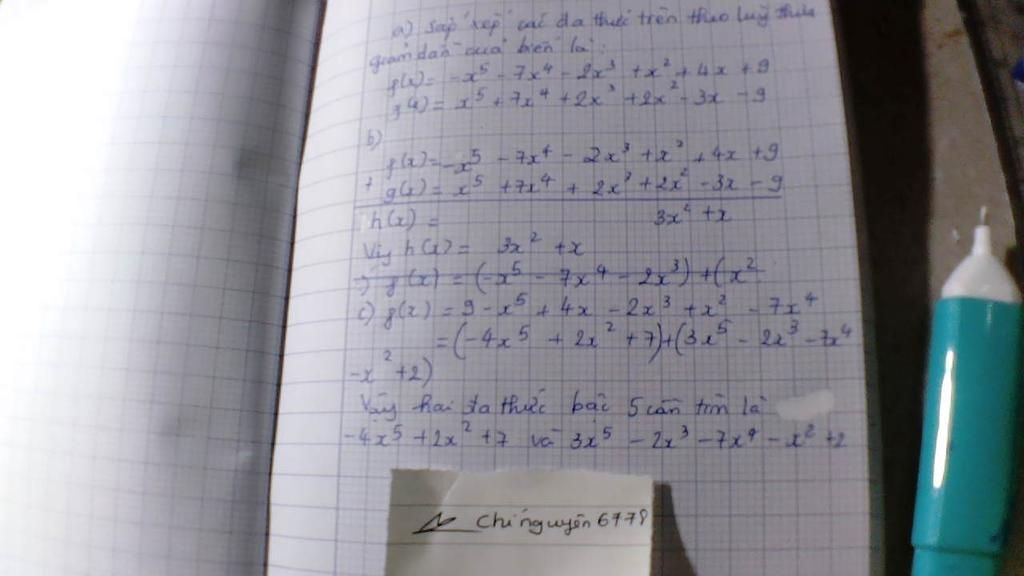 a) Sắp xếp các đa thức trên theo luỹ thừa
giảm dần của biến là:
f(x) = -x⁵ - 7x⁴ - 2x³ + x² + 4x + 9
g(x) = x⁵ + 7x⁴ + 2x³ + 2x² - 3x - 9
b)
f(x) = -x⁵ - 7x⁴ - 2x³ + x² + 4x + 9
+ g(x) = x⁵ + 7x⁴ + 2x³ + 2x² - 3x - 9
h(x) = 3x² + x
Vậy h(x) = 3x² + x
c) f(x) = (-x⁵ - 7x⁴ - 2x³) + (x²
c) f(x) = 9 - x⁵ + 4x - 2x³ + x² - 7x⁴
= (-4x⁵ + 2x² + 7) + (3x⁵ - 2x³ - 7x⁴
- x² + 2)
Vậy hai đa thức bậc 5 cần tìm là
-4x⁵ + 2x² + 7 và 3x⁵ - 2x³ - 7x⁴ - x² + 2
Chí nguyên 6778